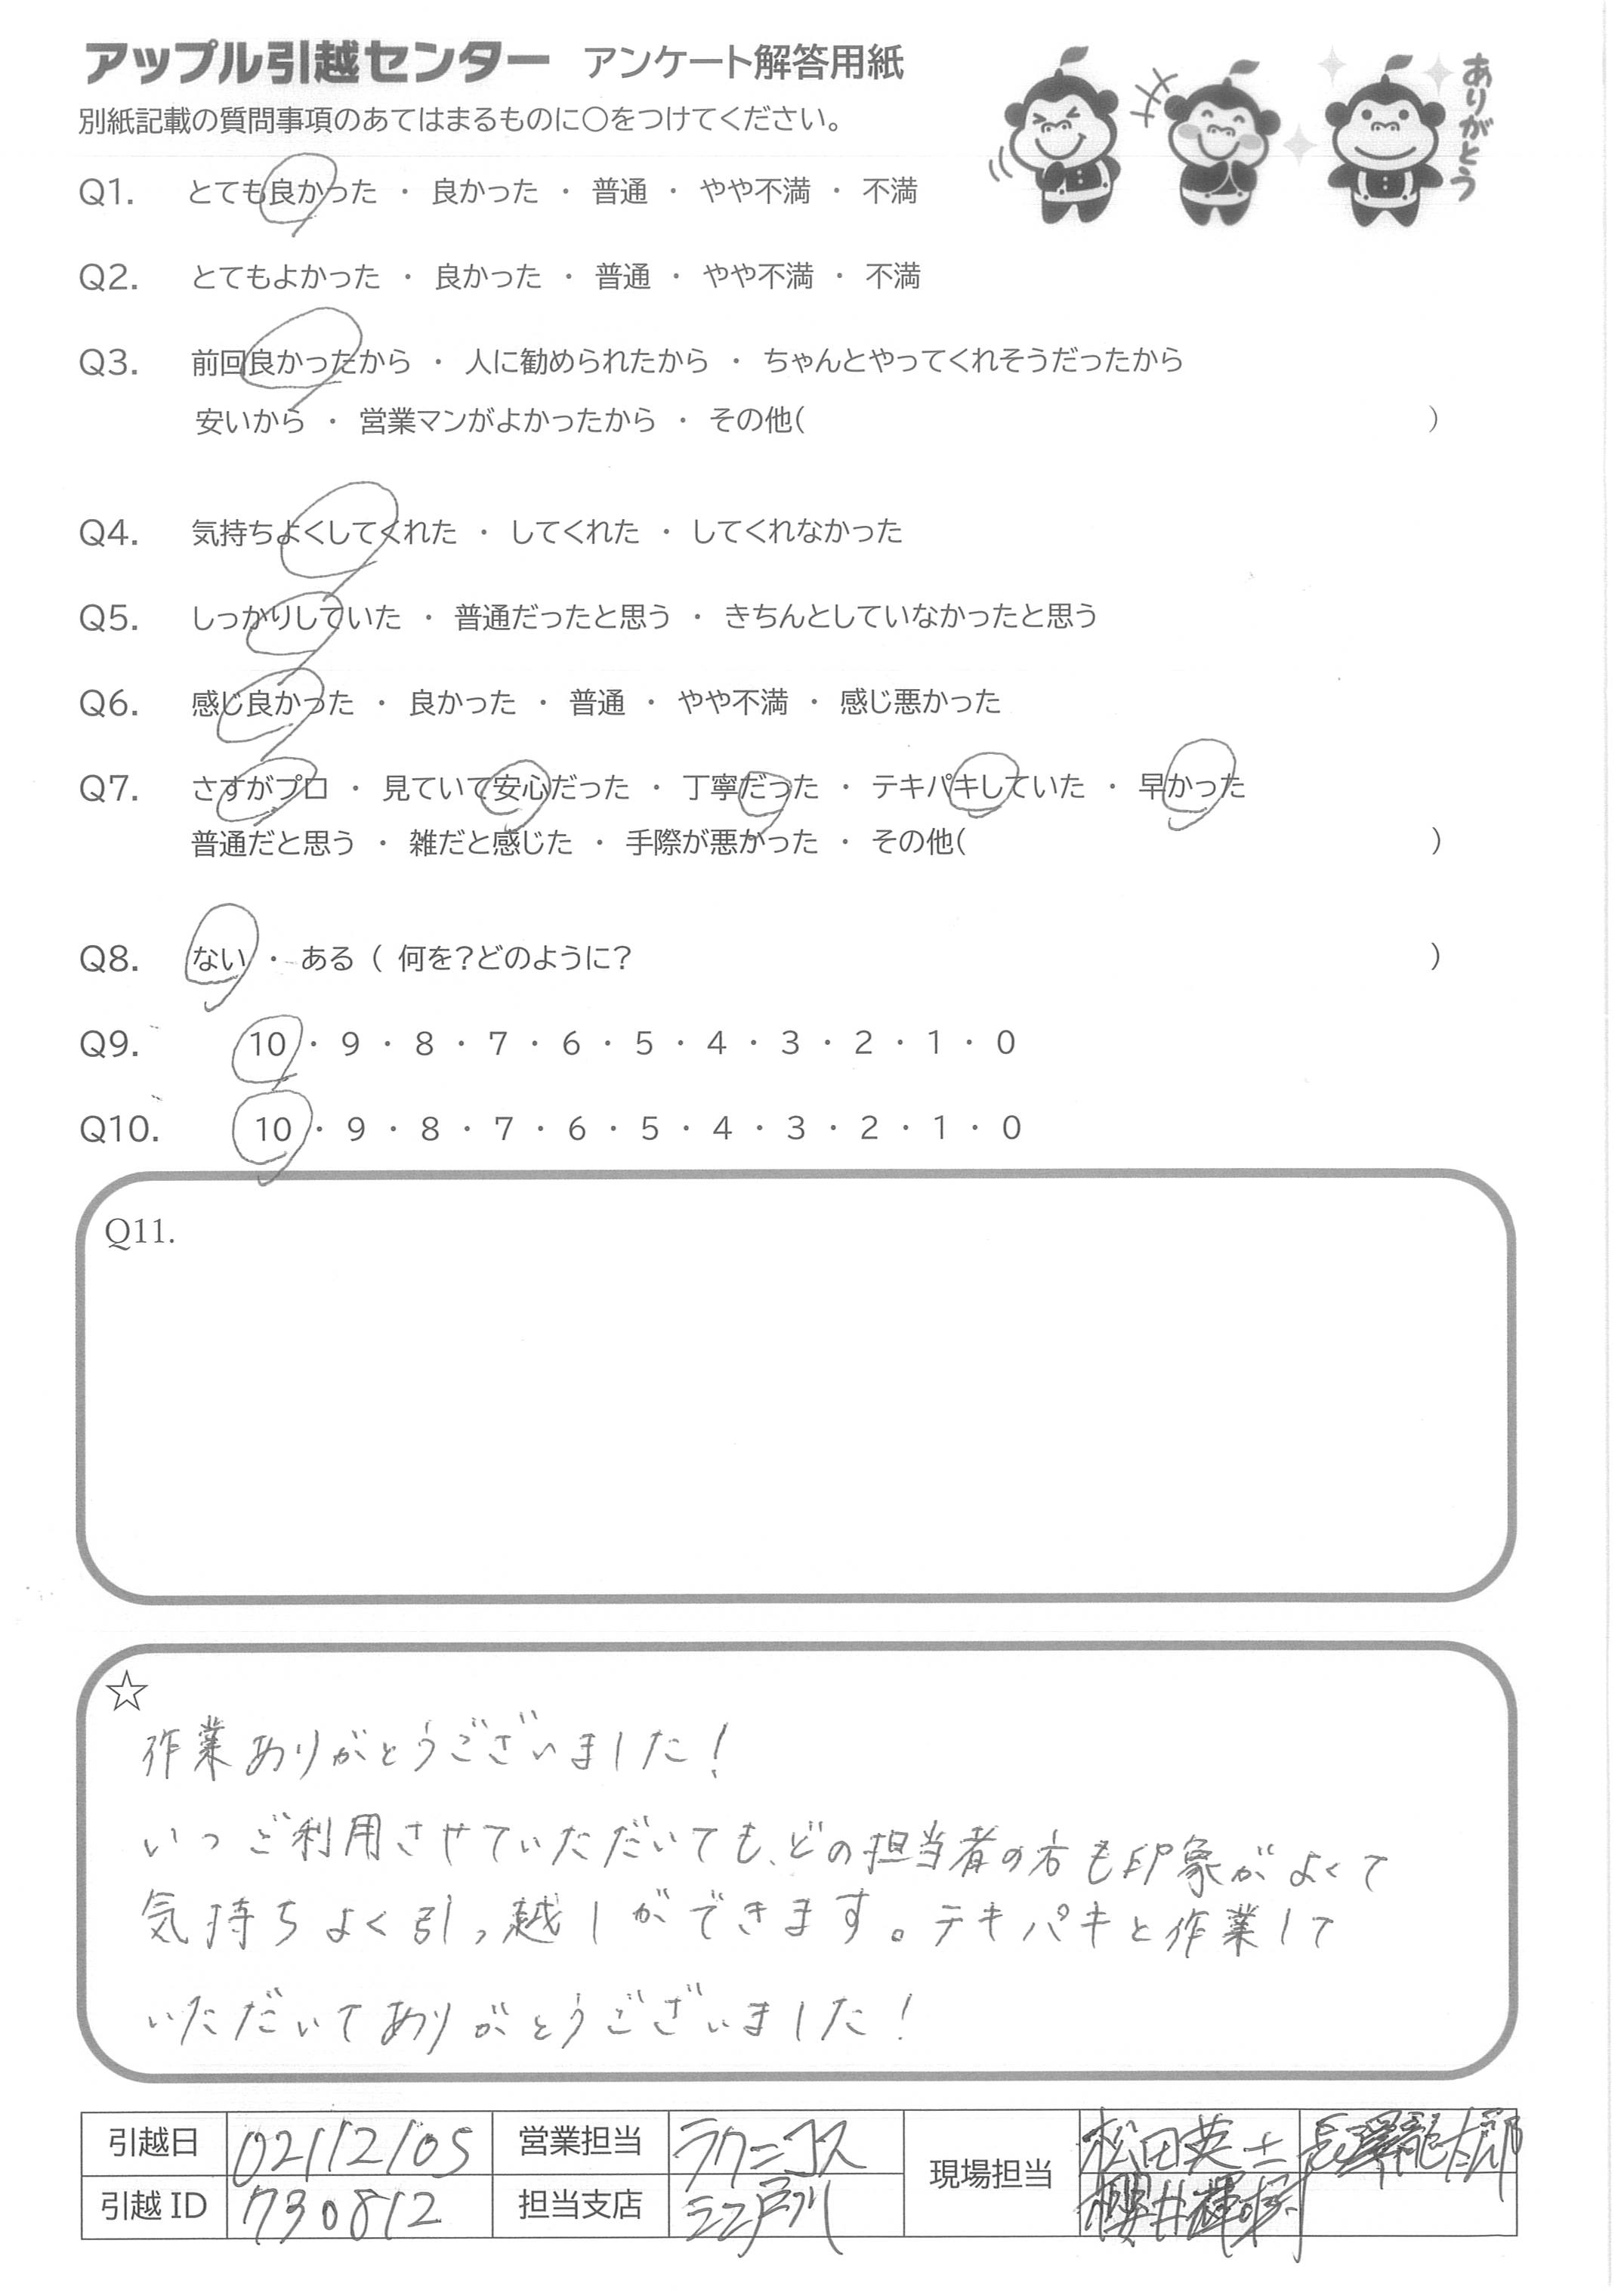 アップル引越センター アンケート解答用紙
ありがとう
別紙記載の質問事項のあてはまるものに〇をつけてください。
Q1. とても良かった ・ 良かった ・ 普通 ・ やや不満 ・ 不満
Q2. とてもよかった ・ 良かった ・ 普通 ・ やや不満 ・ 不満
Q3. 前回良かったから ・ 人に勧められたから ・ ちゃんとやってくれそうだったから
安いから ・ 営業マンがよかったから ・ その他( )
Q4. 気持ちよくしてくれた ・ してくれた ・ してくれなかった
Q5. しっかりしていた ・ 普通だったと思う ・ きちんとしていなかったと思う
Q6. 感じ良かった ・ 良かった ・ 普通 ・ やや不満 ・ 感じ悪かった
Q7. さすがプロ ・ 見ていて安心だった ・ 丁寧だった ・ テキパキしていた ・ 早かった
普通だと思う ・ 雑だと感じた ・ 手際が悪かった ・ その他( )
Q8. ない ・ ある ( 何を?どのように? )
Q9. 10 ・ 9 ・ 8 ・ 7 ・ 6 ・ 5 ・ 4 ・ 3 ・ 2 ・ 1 ・ 0
Q10. 10 ・ 9 ・ 8 ・ 7 ・ 6 ・ 5 ・ 4 ・ 3 ・ 2 ・ 1 ・ 0
Q11.
☆
作業ありがとうございました!
いつご利用させていただいても、どの担当者の方も印象がよくて
気持ちよく引っ越しができます。テキパキと作業して
いただいてありがとうございました!
引越日 02/12/05 営業担当 ラクニコス 現場担当 松田英士
引越ID 730812 担当支店 江戸川 櫻井